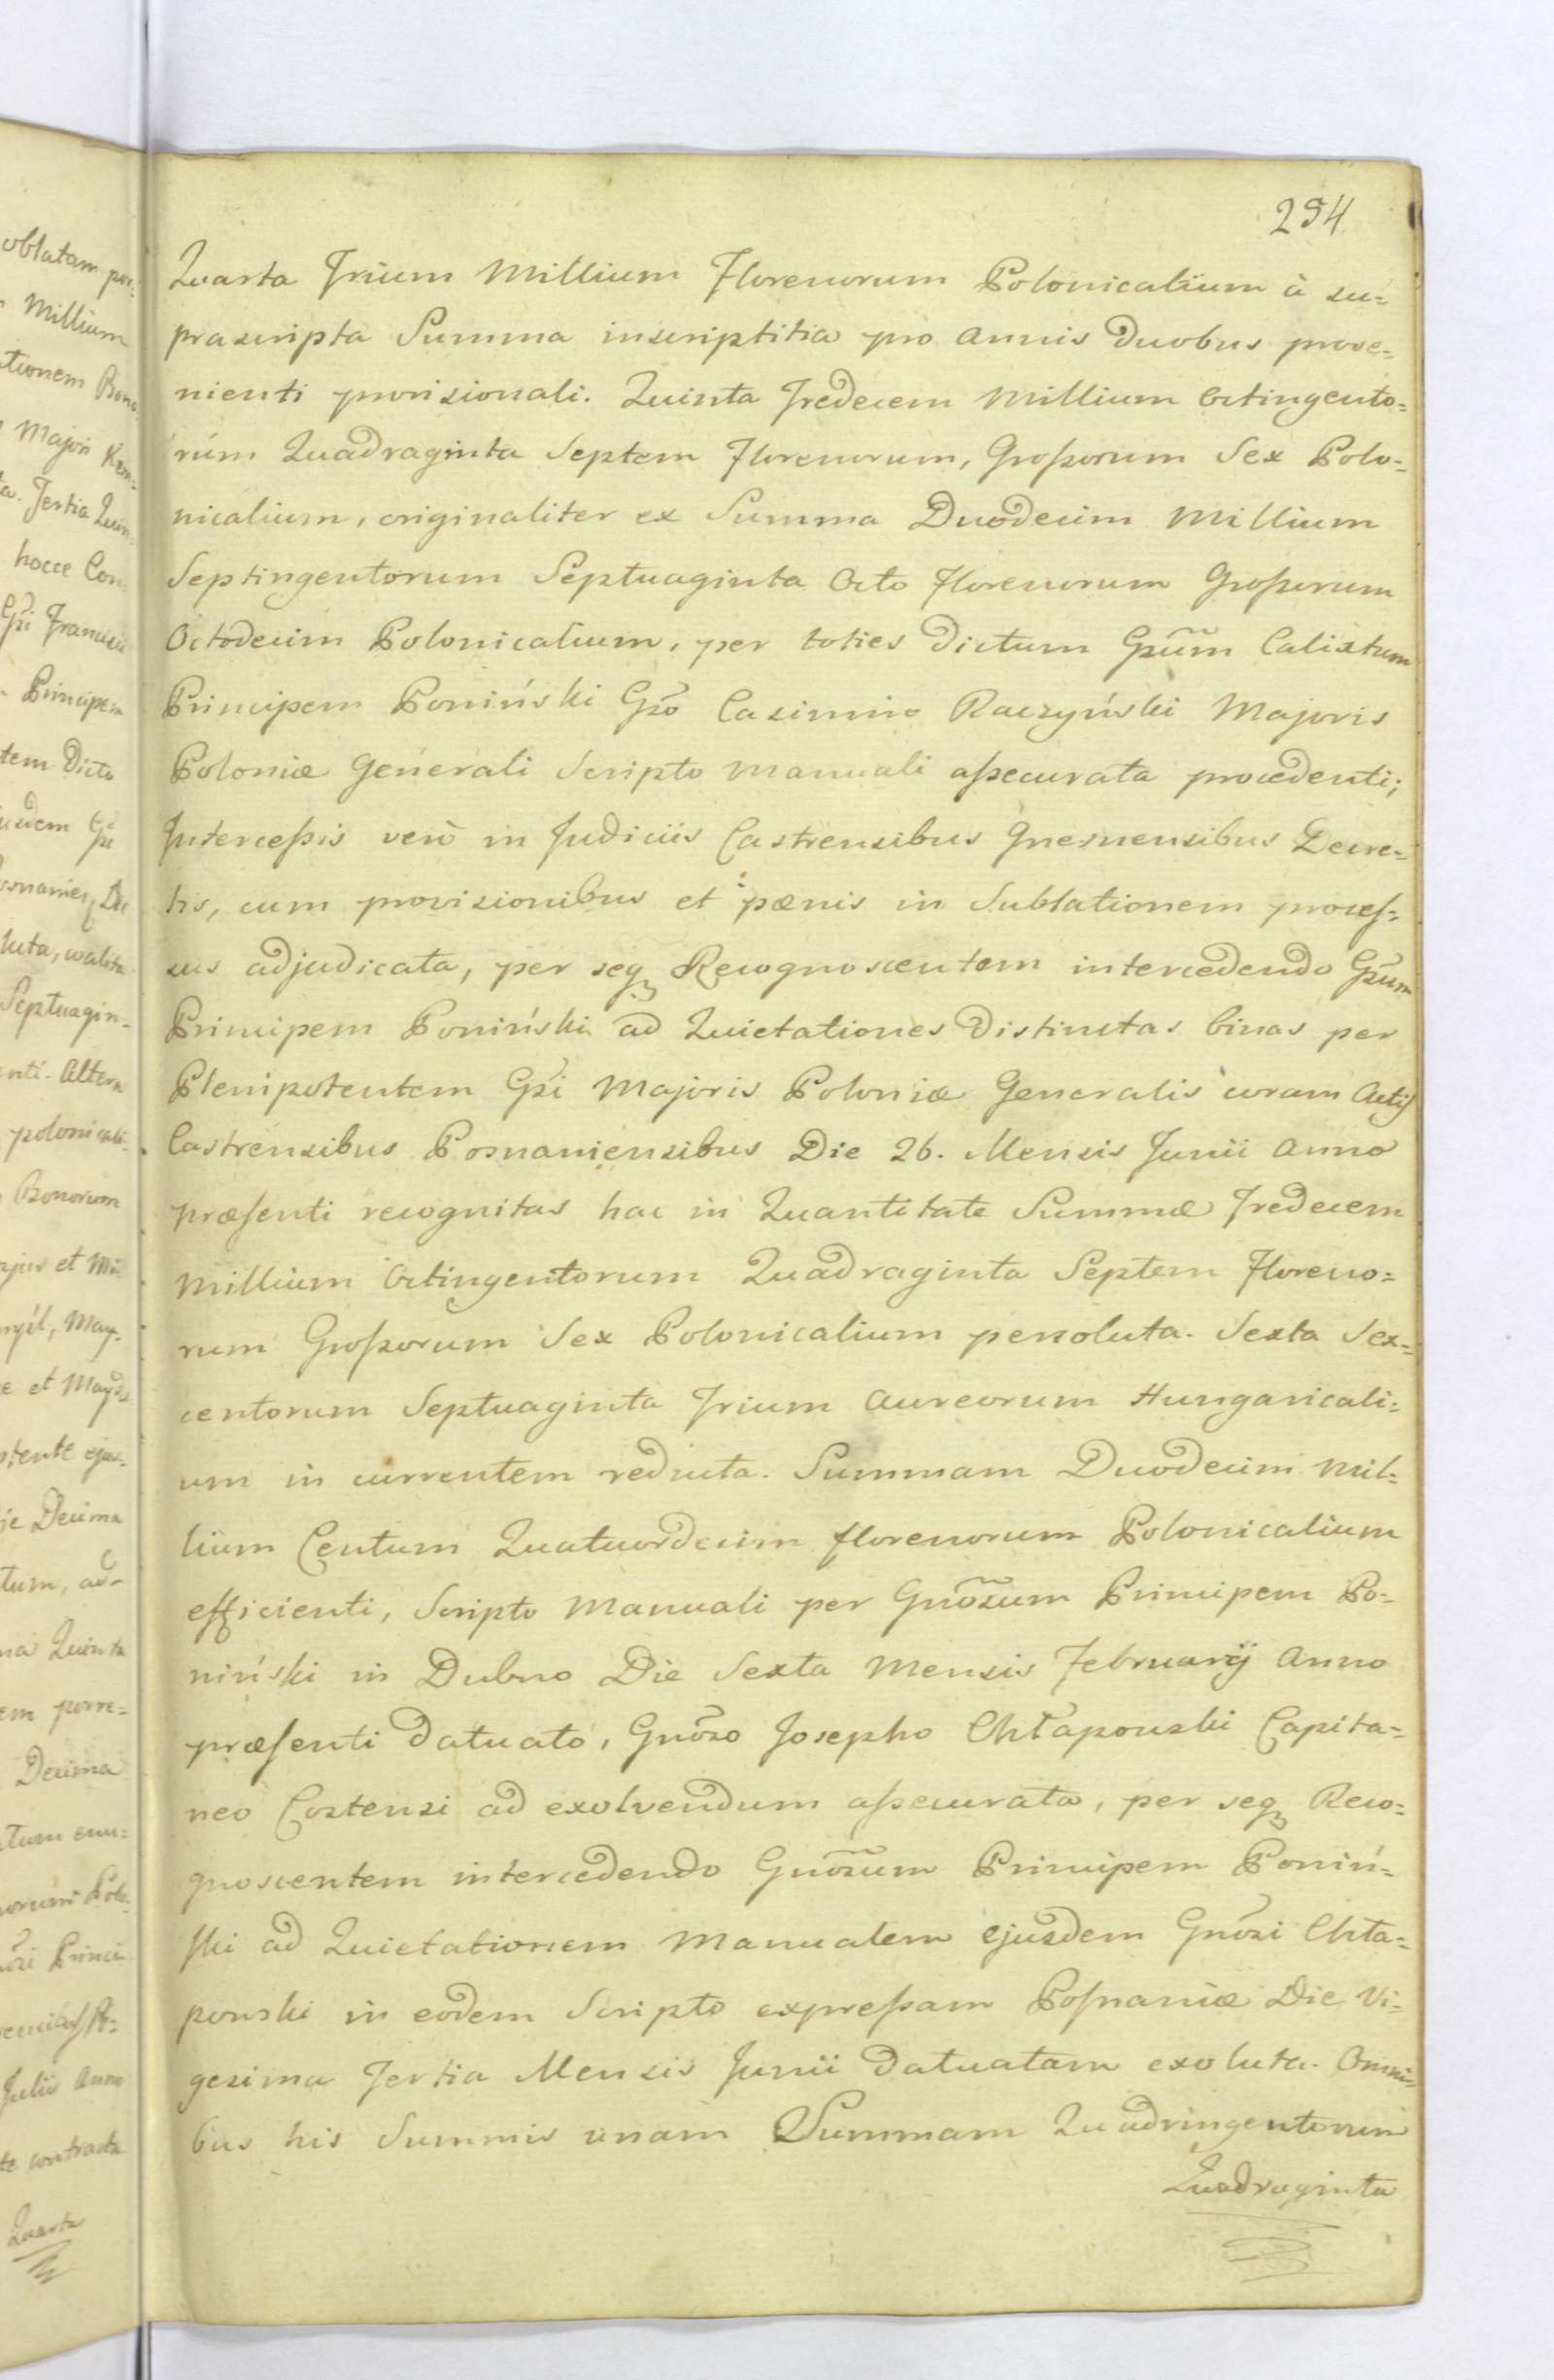 294
Quarta Trium Millium Florenorum Polonicalium à su=
prascripta Summa inscriptitia pro Annis Duobus prove=
nienti provisionali. Quinta Tredecem Millium Octingento=
rum Quadraginta Septem Florenorum, Grossorum Sex Polo=
nicalium, originaliter ex Summa Duodecim Millium
Septingentorum Septuaginta Octo Florenorum Grossorum
Octodecim Polonicalium, per toties Dictum Gsũm Calixtum
Principem Poniński Gso Casimiro Raczyński Majoris
Poloniæ Generali Scripto Manuali assecurata procedenti;
Intercessis verò in Judiciis Castrensibus Gnesnensibus Decre=
tis, cum provisionibus et pænis in Sublationem proces=
sus adjudicata, per seq Recognoscentem intercedendo Gsum
Principem Poniński ad Quietationes Distinctas binas per
Plenipotentem Gsi Majoris Poloniæ Generalis coram Actis
Castrensibus Posnaniensibus Die 26. Mensis Junii Anno
præsenti recognitas hac in Quantitate Summæ Tredecem
Millium Octingentorum Quadraginta Septem Floreno=
rum Grossorum Sex Polonicalium persoluta. Sexta Sex=
centorum Septuaginta Trium Aureorum Hungaricali=
um in currentem reducta. Summam Duodecim Mil=
lium Centum Quatuordecim florenorum Polonicalium
efficienti, Scripto Manuali per Gnõsum Principem Po=
niński in Dubno Die Sexta Mensis Februarij Anno
præsenti Datuato, Gnõso Josepho Chłapowski Capita=
neo Costensi ad exolvendum assecurata, per seq Reco=
gnoscentem intercedendo Gnõsum Principem Poniń=
ski ad Quietationem Manualem ejusdem Gnõsi Chła=
powski in eodem Scripto expressam Posnaniæ Die Vi=
gesima Tertia Mensis Junii Datuatam exoluta. Omni=
bus his Summis unam Summam Quadringentorum
Quadraginta